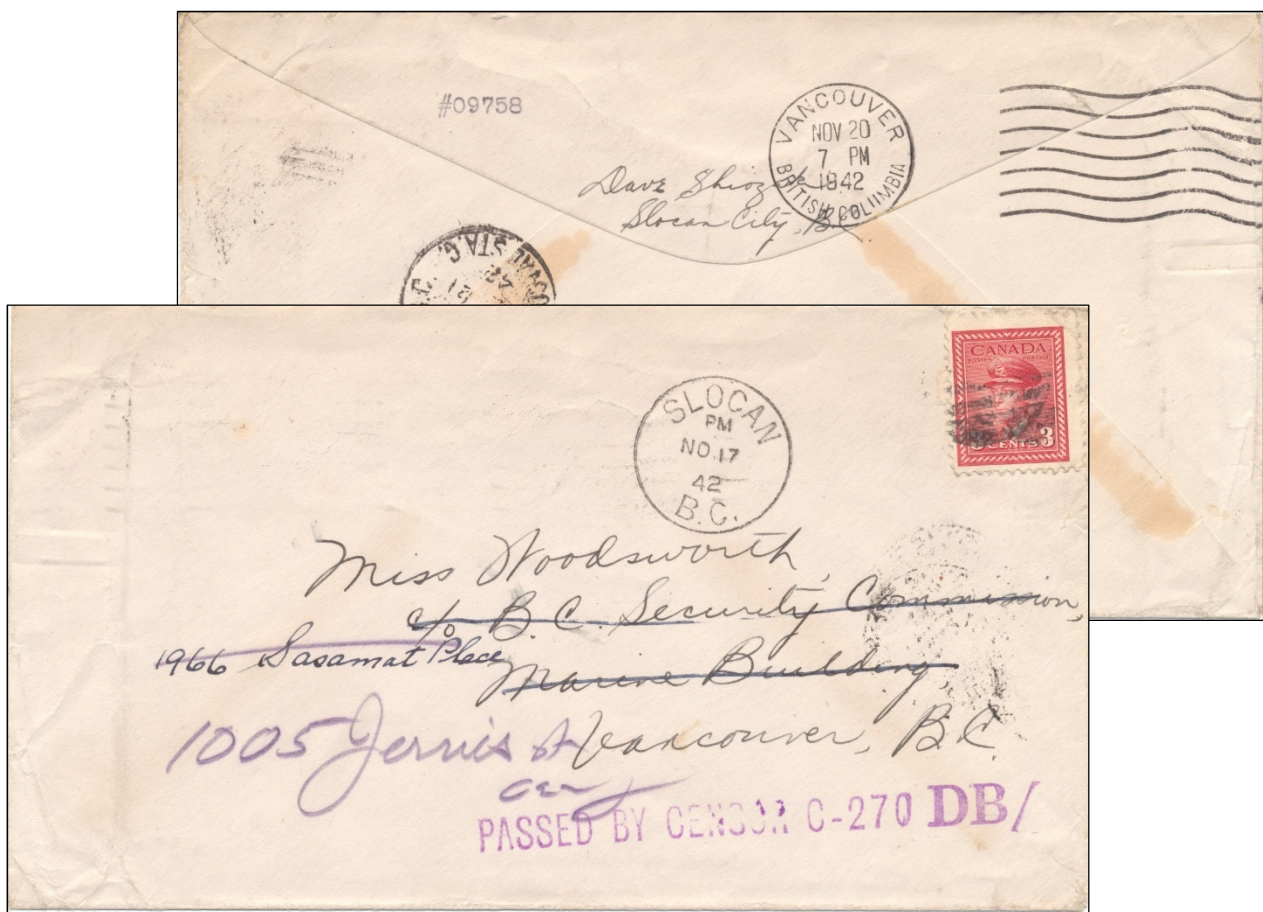 #09758
VANCOUVER
NOV 20
7 PM
1942
BRITISH COLUMBIA
Dave
Slocan City, B.C.
STA C
21
42
CANADA
POSTES POSTAGE
3 CENTS 3
SLOCAN
PM
NO. 17
42
B.C.
Miss Woodsworth,
c/o B.C. Security Commission,
1966 Sasamat Place
Marine Building,
1005 Jervis St Vancouver, B.C.
PASSED BY CENSOR C-270 DB/